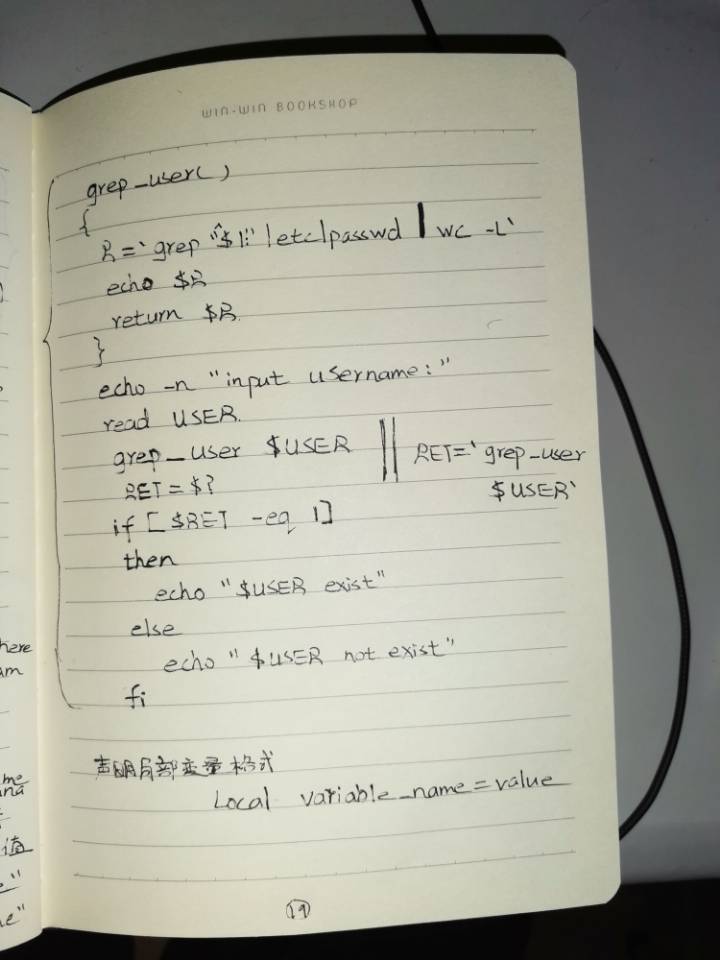 WIN-WIN BOOKSHOP
grep_user()
{
R=`grep "^$1:" /etc/passwd | wc -l`
echo $R
return $R
}
echo -n "input username:"
read USER
grep_user $USER || RET=`grep-user
RET=$? $USER`
if [ $RET -eq 1]
then
echo "$USER exist"
else
echo "$USER not exist"
fi
声明局部变量格式
Local variable_name=value
19
here
am
me
值
e"
me"